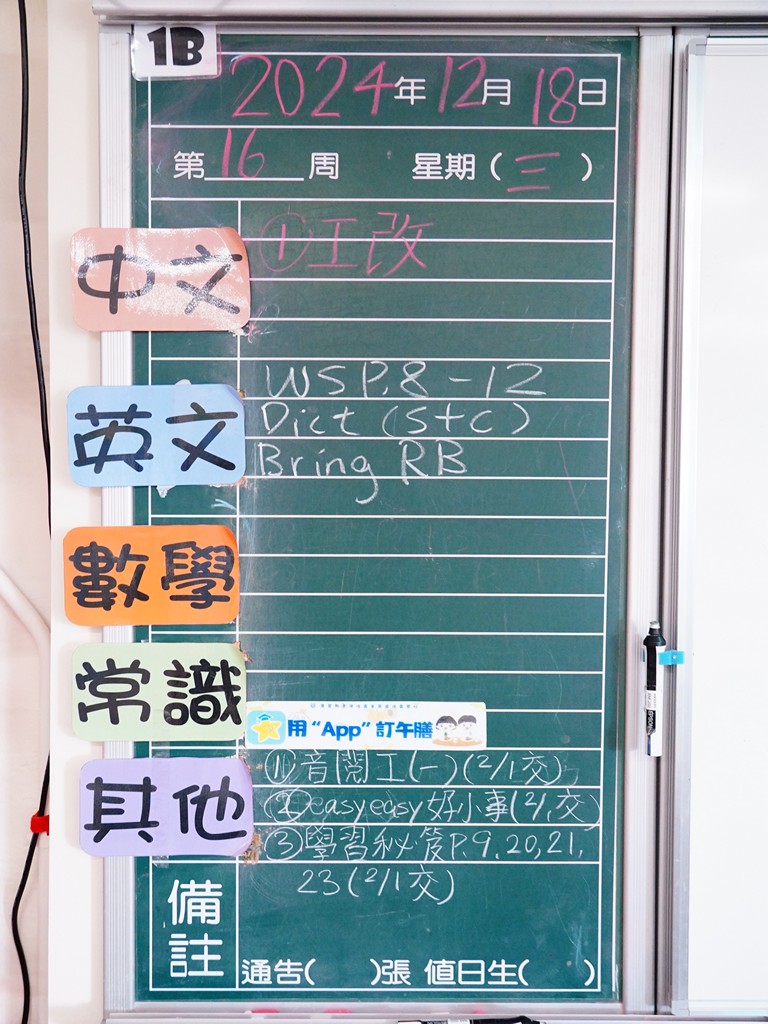 1B
2024年12月18日
第16周 星期(三)
中文
①工改
英文
WS P.8-12
Dict (S+C)
Bring RB
數學
常識
用“App”訂午膳
其他
①音閱工(一)(2/1交)
②easyeasy好小事(2/1交)
③學習秘笈P.9,20,21,
23(2/1交)
備註
通告( )張 值日生( )
EPSON